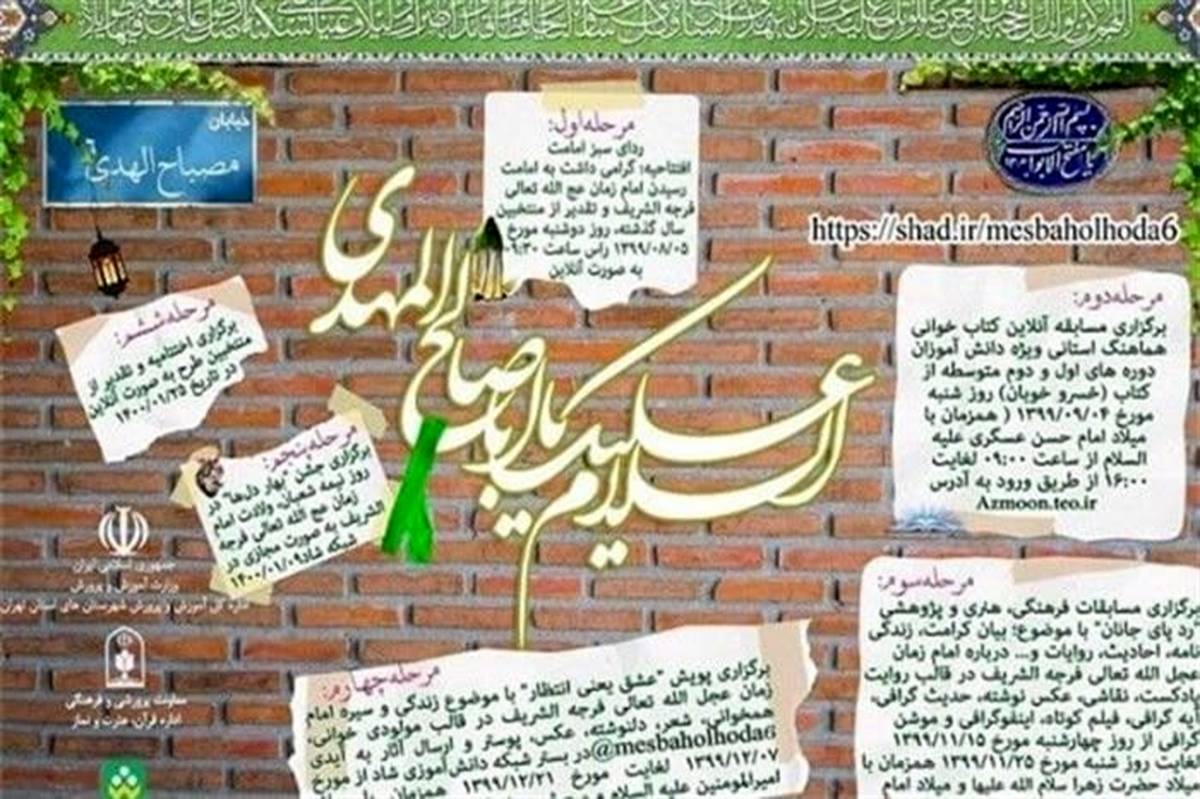 خیابان
مصباح الهدی
بسم الله الرحمن الرحیم
یا مفتح الابواب
https://shad.ir/mesbaholhoda6
السلام علیک یا اباصالح المهدی
مرحله اول:
ردای سبز امامت
افتتاحیه؛ گرامی داشت به امامت
رسیدن امام زمان عج الله تعالی
فرجه الشریف و تقدیر از منتخبین
سال گذشته، روز دوشنبه مورخ
۱۳۹۹/۰۸/۰۵ راس ساعت ۰۹:۳۰
به صورت آنلاین
مرحله دوم:
برگزاری مسابقه آنلاین کتاب خوانی
هماهنگ استانی ویژه دانش آموزان
دوره های اول و دوم متوسطه از
کتاب (خسرو خوبان) روز شنبه
مورخ ۱۳۹۹/۰۹/۰۴ ( همزمان با
میلاد امام حسن عسکری علیه
السلام از ساعت ۰۹:۰۰ لغایت
۱۶:۰۰ از طریق ورود به آدرس
Azmoon.teo.ir
مرحله سوم:
برگزاری مسابقات فرهنگی، هنری و پژوهشی
رد پای جانان" با موضوع؛ بیان کرامت، زندگی
نامه، احادیث، روایات و... درباره امام زمان
عجل الله تعالی فرجه الشریف در قالب روایت
پادکست، نقاشی، عکس نوشته، حدیث گرافی،
آیه گرافی، فیلم کوتاه، اینفوگرافی و موشن
گرافی از روز چهارشنبه مورخ ۱۳۹۹/۱۱/۱۵
لغایت روز شنبه مورخ ۱۳۹۹/۱۱/۲۵ همزمان با
میلاد حضرت زهرا سلام الله علیها و میلاد امام
مرحله چهارم:
برگزاری پویش "عشق یعنی انتظار" با موضوع زندگی و سیره امام
زمان عجل الله تعالی فرجه الشریف در قالب مولودی خوانی،
همخوانی، شعر، دلنوشته، عکس، پوستر و ارسال آثار به آیدی
@mesbaholhoda6 در بستر شبکه دانش آموزی شاد از مورخ
۱۳۹۹/۱۲/۰۷ لغایت مورخ ۱۳۹۹/۱۲/۲۱ همزمان با
امیرالمومنین علیه السلام
مرحله پنجم:
برگزاری جشن "بهار دل‌ها" در
روز نیمه شعبان، ولادت امام
زمان عج الله تعالی فرجه
الشریف به صورت مجازی در
شبکه شاد ۱۴۰۰/۰۱/۰۹
مرحله ششم:
برگزاری اختتامیه و تقدیر از
منتخبین طرح به صورت آنلاین
در تاریخ ۱۴۰۰/۰۱/۲۵
جمهوری اسلامی ایران
وزارت آموزش و پرورش
اداره کل آموزش و پرورش شهرستان های استان تهران
معاونت پرورشی و فرهنگی
اداره قرآن، عترت و نماز